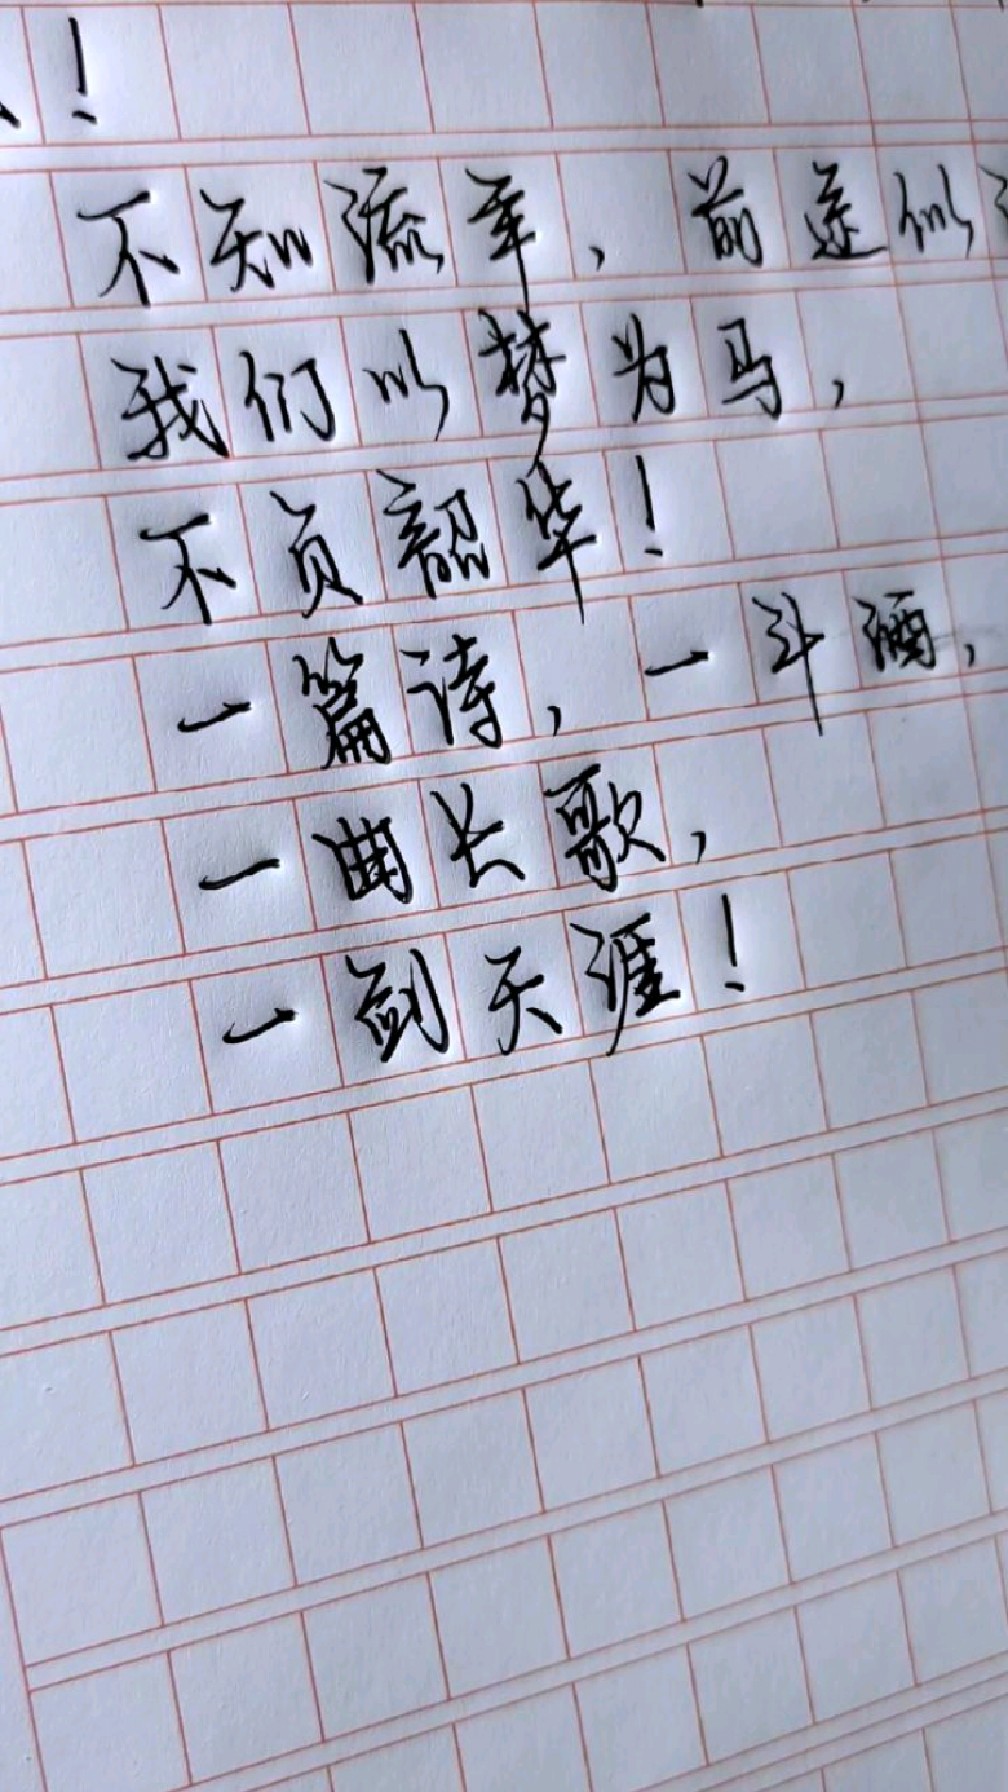 ！
不知流年，前途似
我们以梦为马，
不负韶华！
一篇诗，一斗酒，
一曲长歌，
一剑天涯！